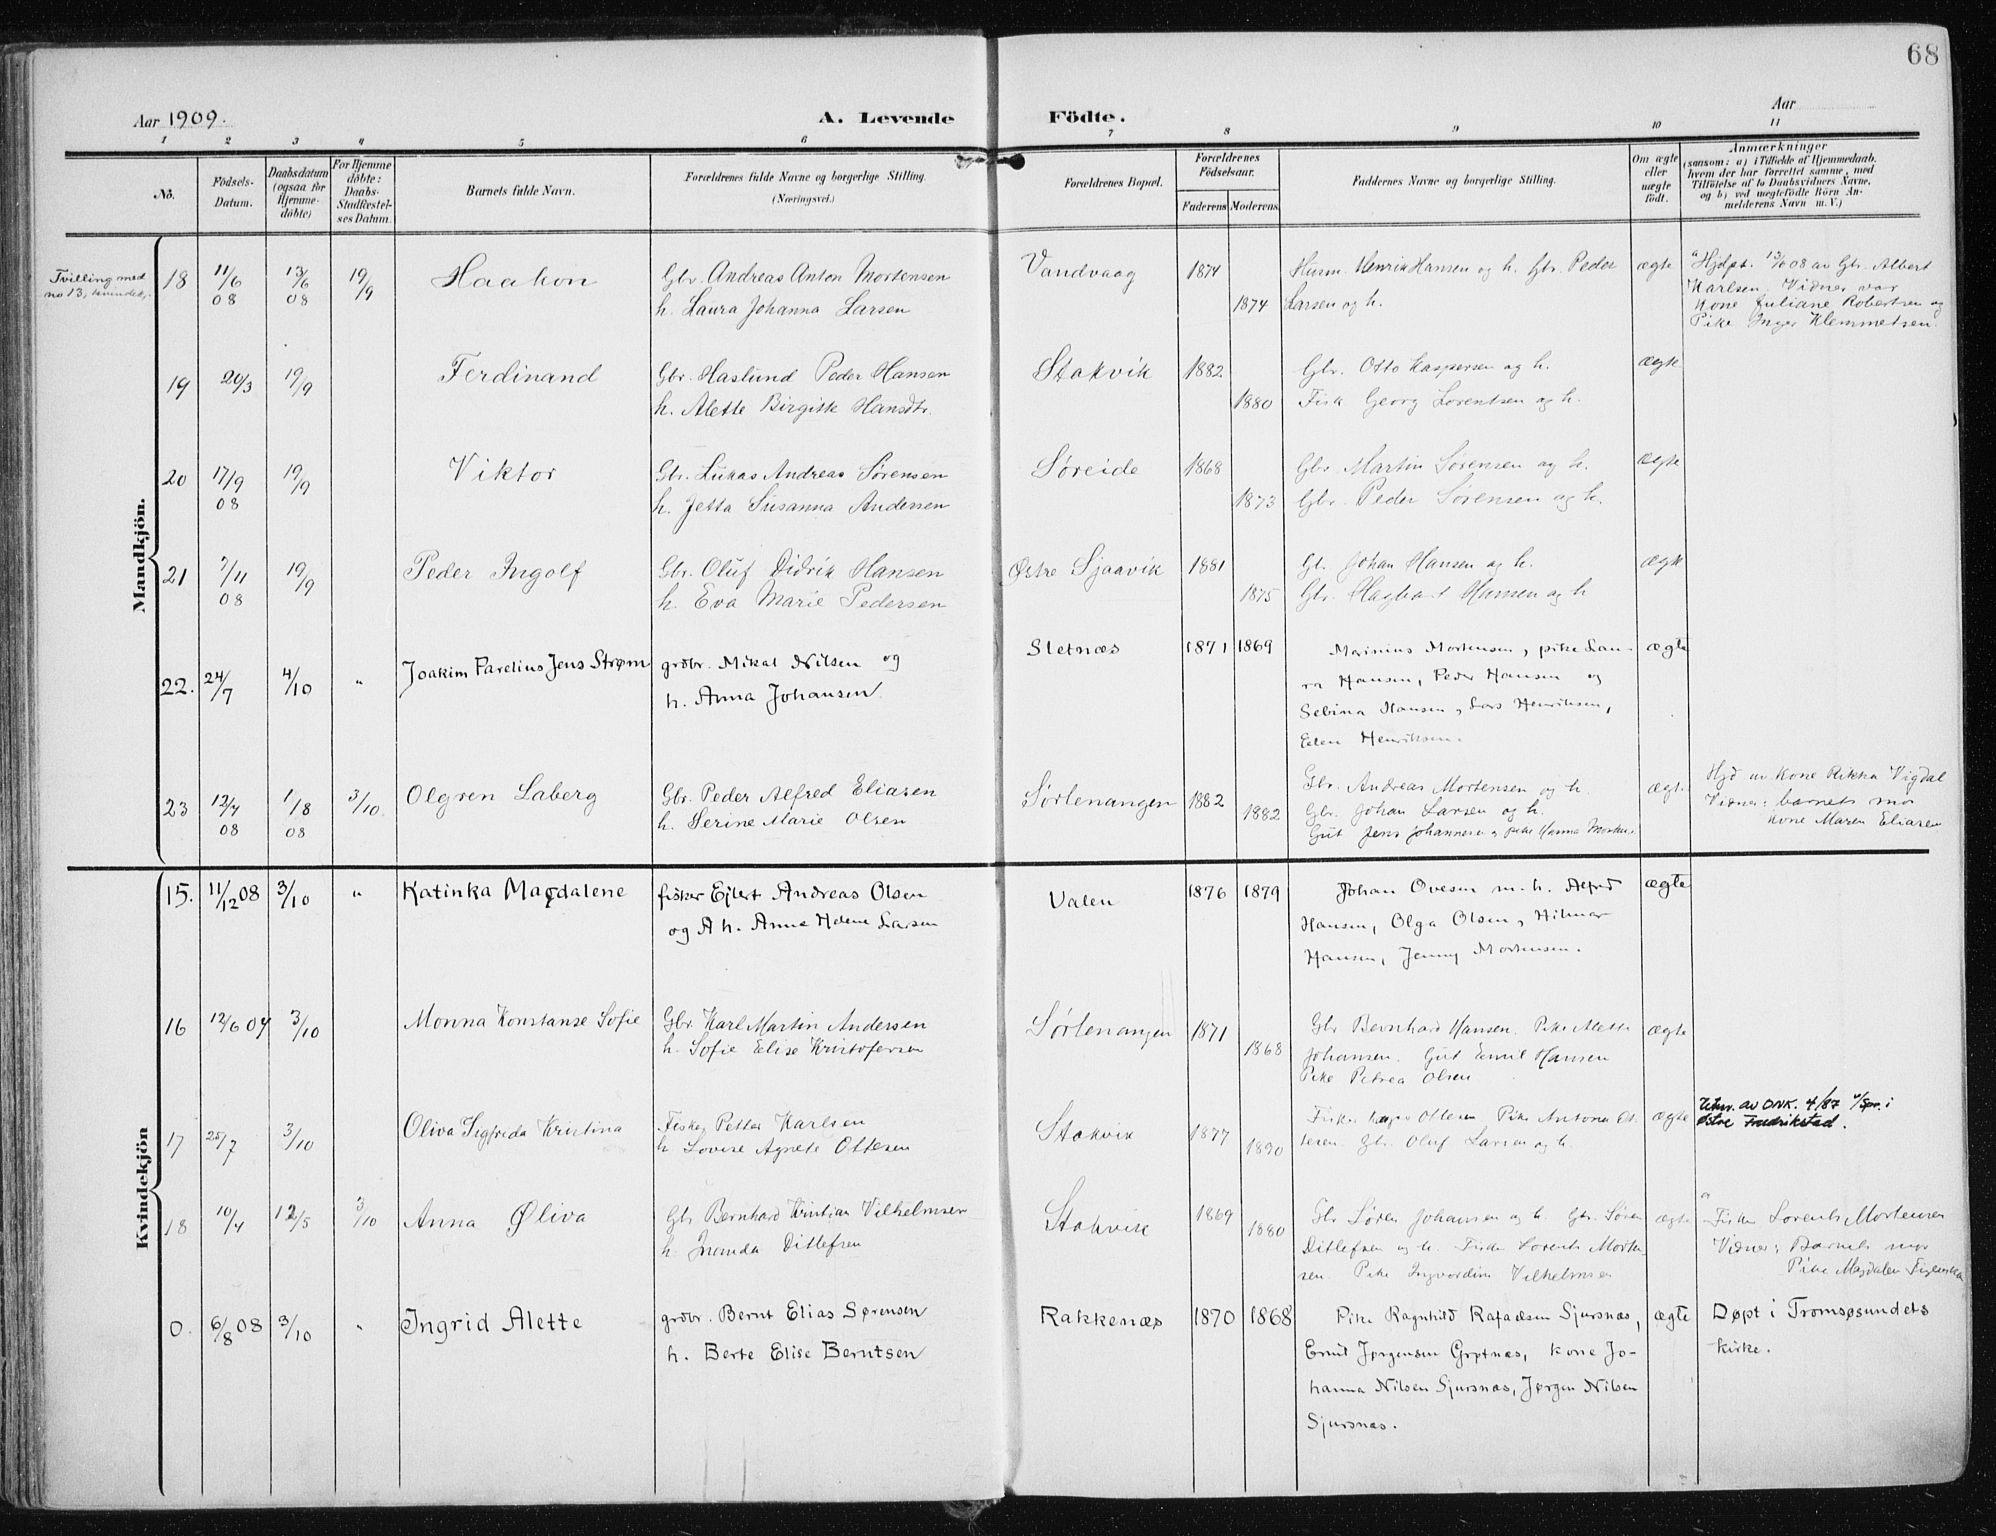 68
Aar 1909.
A. Levende Födte.
Aar
1 2 3 4 5 6 7 8 9 10 11
No.
Födsels-Datum.
Daabsdatum (ogsaa for Hjemme-döbte)
For Hjemme döbte: Daabs-Stadfæstel-ses Datum.
Barnets fulde Navn.
Forældrenes fulde Navne og borgerlige Stilling. (Næringsvei.)
Forældrenes Bopæl.
Forældrenes Födselsaar.
Faderens Moderens
Faddernes Navne og borgerlige Stilling.
Om ægte eller uægte født.
Anmærkninger
(saasom: a) i Tilfælde af Hjemmedaab, hvem der har forrettet samme, med Tilföielse af to Daabsvidners Navne, og b) ved uægtefödte Börn An-melderens Navn m. V.)
Mandkjön.
Tvilling med no 13, kvindekj.
18 11/6 08 13/6 08 19/9 Haakon
Gbr. Andreas Anton Mortensen
h. Laura Johanna Larsen
Vandvaag 1874 1874
Husm. Henrik Hansen og h. Gbr. Peder
Larsen og h.
ægte
a Hjdpt. 13/6 08 av Gbr. Albert
Karlsen. Vidner var
Kone Juliane Robertsen og
Pike Inger Klemmetsen.
19 20/3 19/9 Ferdinand
Gbr. Haslund Peder Hansen
h. Alette Birgitte Hansdtr.
Stakvik 1882 1880
Gbr. Otto Kaspersen og h.
Fisk Georg Lorentsen og h.
ægte
20 17/9 08 19/9 Viktor
Gbr. Lukas Andreas Sørensen
h. Jetta Susanna Andersen
Søreide 1868 1873
Gbr Martin Sørensen og h.
Gbr. Peder Sørensen og h.
ægte
21 7/11 08 19/9 Peder Ingolf
Gbr. Oluf Didrik Hansen
h. Eva Marie Pedersen
Østre Sjaavik 1881 1875
Gb. Johan Hansen og h.
Gbr. Hagbart Hansen og h
ægte
22. 24/7 4/10 " Joakim Parelius Jens Strøm
grdbr. Mikal Nilsen og
h. Anna Johansen
Sletnæs 1871 1869
Marinius Mortensen, pike Lau-
ra Hansen, Peder Hansen og
Sebina Hansen, Lars Henriksen,
Elen Henriksen.
ægte
23 12/7 08 1/8 08 3/10 Olgren Laberg
Gbr. Peder Alfred Eliasen
h. Serine Marie Olsen
Sørlenangen 1882 1882
Gbr. Andreas Mortensen og h.
Gbr. Johan Larsen og h.
Gut Jens Johannesen, pike Hanna
ægte
Hjd av Kone Rikka Vigdal
Vidner: barnets mor
Kone Maren Eliasen
Kvindekjön
15. 11/12 08 3/10 " Katinka Magdalene
fisker Ejlert Andreas Olsen
og h. Anna Helene Larsen
Valen 1876 1879
Johan Ovesen m. h. Alfred
Hansen, Olga Olsen, Hilmar
Hansen, Jenny Mortensen.
ægte
16 12/6 07 3/10 Monna Konstanse Sofie
Gbr. Karl Martin Andersen
h. Sofie Elise Kristofersen
Sørlenangen 1871 1868
Gbr Bernhard Hansen. Pike Alette
Johansen. Gut Emil Hansen
Pike Petrea Olsen
ægte
17 25/7 3/10 Oliva Sigfrida Kristina
Fisker Petter Karlsen
h Lovise Agnete Ottesen
Stakvik 1877 1890
Fisker Ottesen Pike Antona Ot-
tesen. Gbr. Oluf Larsen og h.
ægte
av DNK. 4/87 v/Spr. i
Østre Fredrikstad.
18 10/4 12/5 3/10 Anna Oliva
Gbr Bernhard Kristian Vilhelmsen
h. Ditlefsen
Stakvik 1869 1880
Gbr Søren Johansen og h. Gbr. Søren
Ditlefsen og h. Fisker Lorents Morten-
sen. Pike Ingvardine Vilhelmsen
ægte
a Fisker Lorents Mortensen
Vidner: Barnets mor
Pike Magdalene
0. 6/8 08 3/10 " Ingrid Alette
grdbr. Bernt Elias Sørensen
h. Berte Elise Berntsen
Rakkenæs 1870 1868
Pike Ragnhild Rafaelsen Sjursnæs,
Emil Jørgensen Grøtnæs, kone Jo-
hanna Nilsen Sjursnæs, Jørgen Nilsen
Sjursnæs.
ægte
Døpt i Tromsøsundets
kirke.